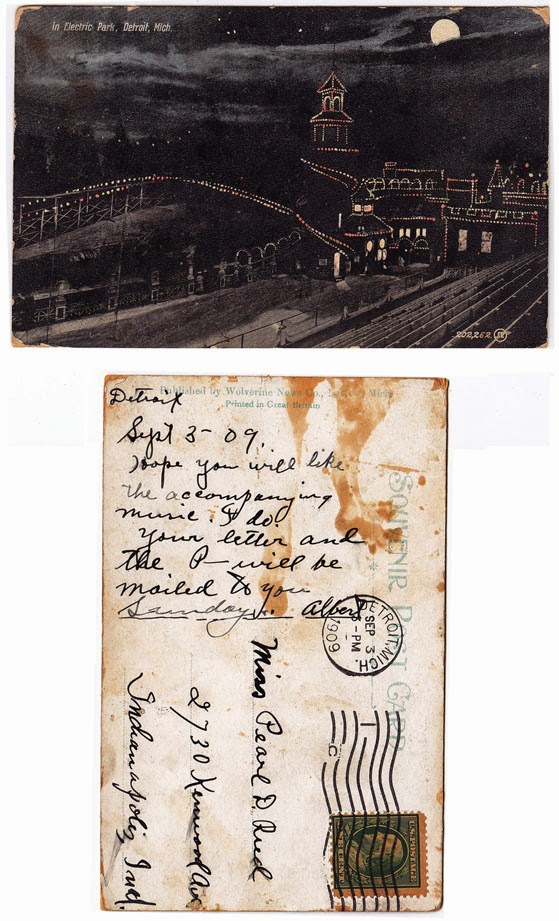 In Electric Park, Detroit, Mich.
202,262
Published by Wolverine News Co., Mich.
Printed in Great Britain
SOUVENIR POST CARD
Detroit
Sept 3-09.
Hope you will like
the accompanying
music. I do.
Your letter and
the P— will be
mailed to you
Sunday... Albert
DETROIT, MICH.
SEP 3
-PM
1909
Miss Pearl D.
2730 Kenwood Ave
Indianapolis, Ind.
U.S. POSTAGE